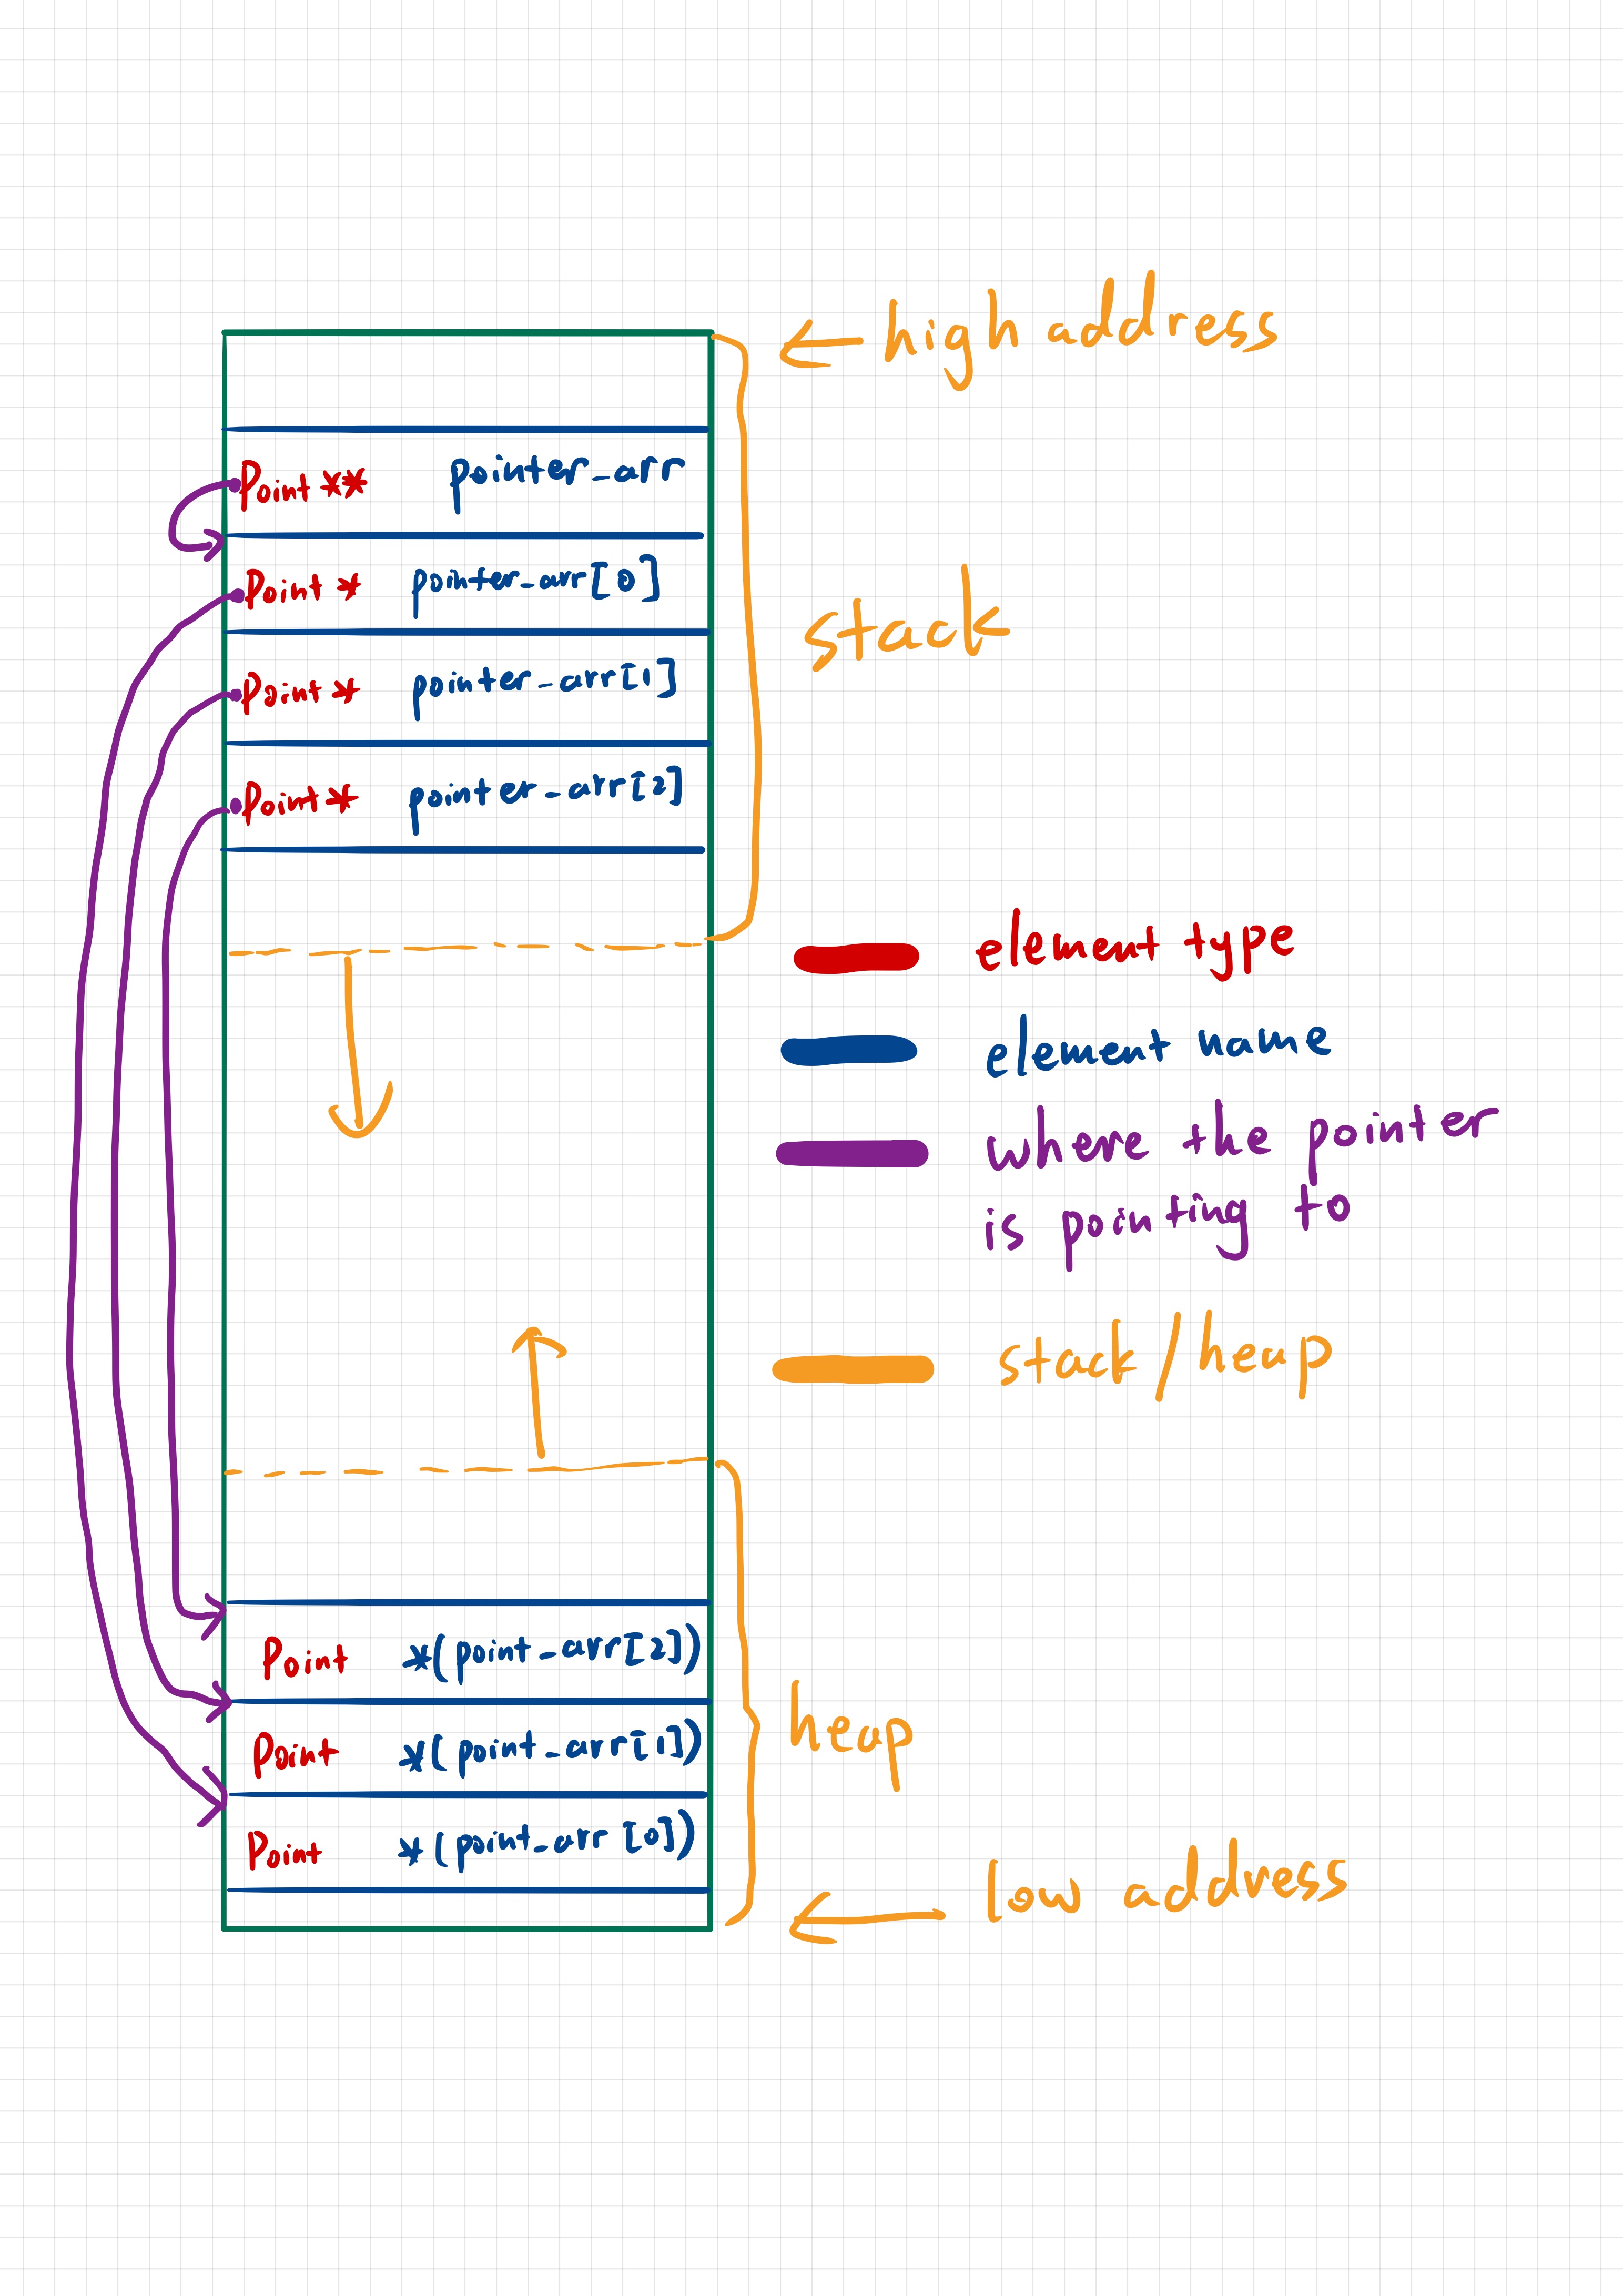 ← high address
Point ** pointer_arr
Point * pointer_arr[0]
stack
Point * pointer_arr[1]
Point * pointer_arr[2]
element type
element name
where the pointer
is pointing to
stack/heap
Point *(point_arr[2])
heap
Point *(point_arr[1])
Point *(point_arr[0])
← low address